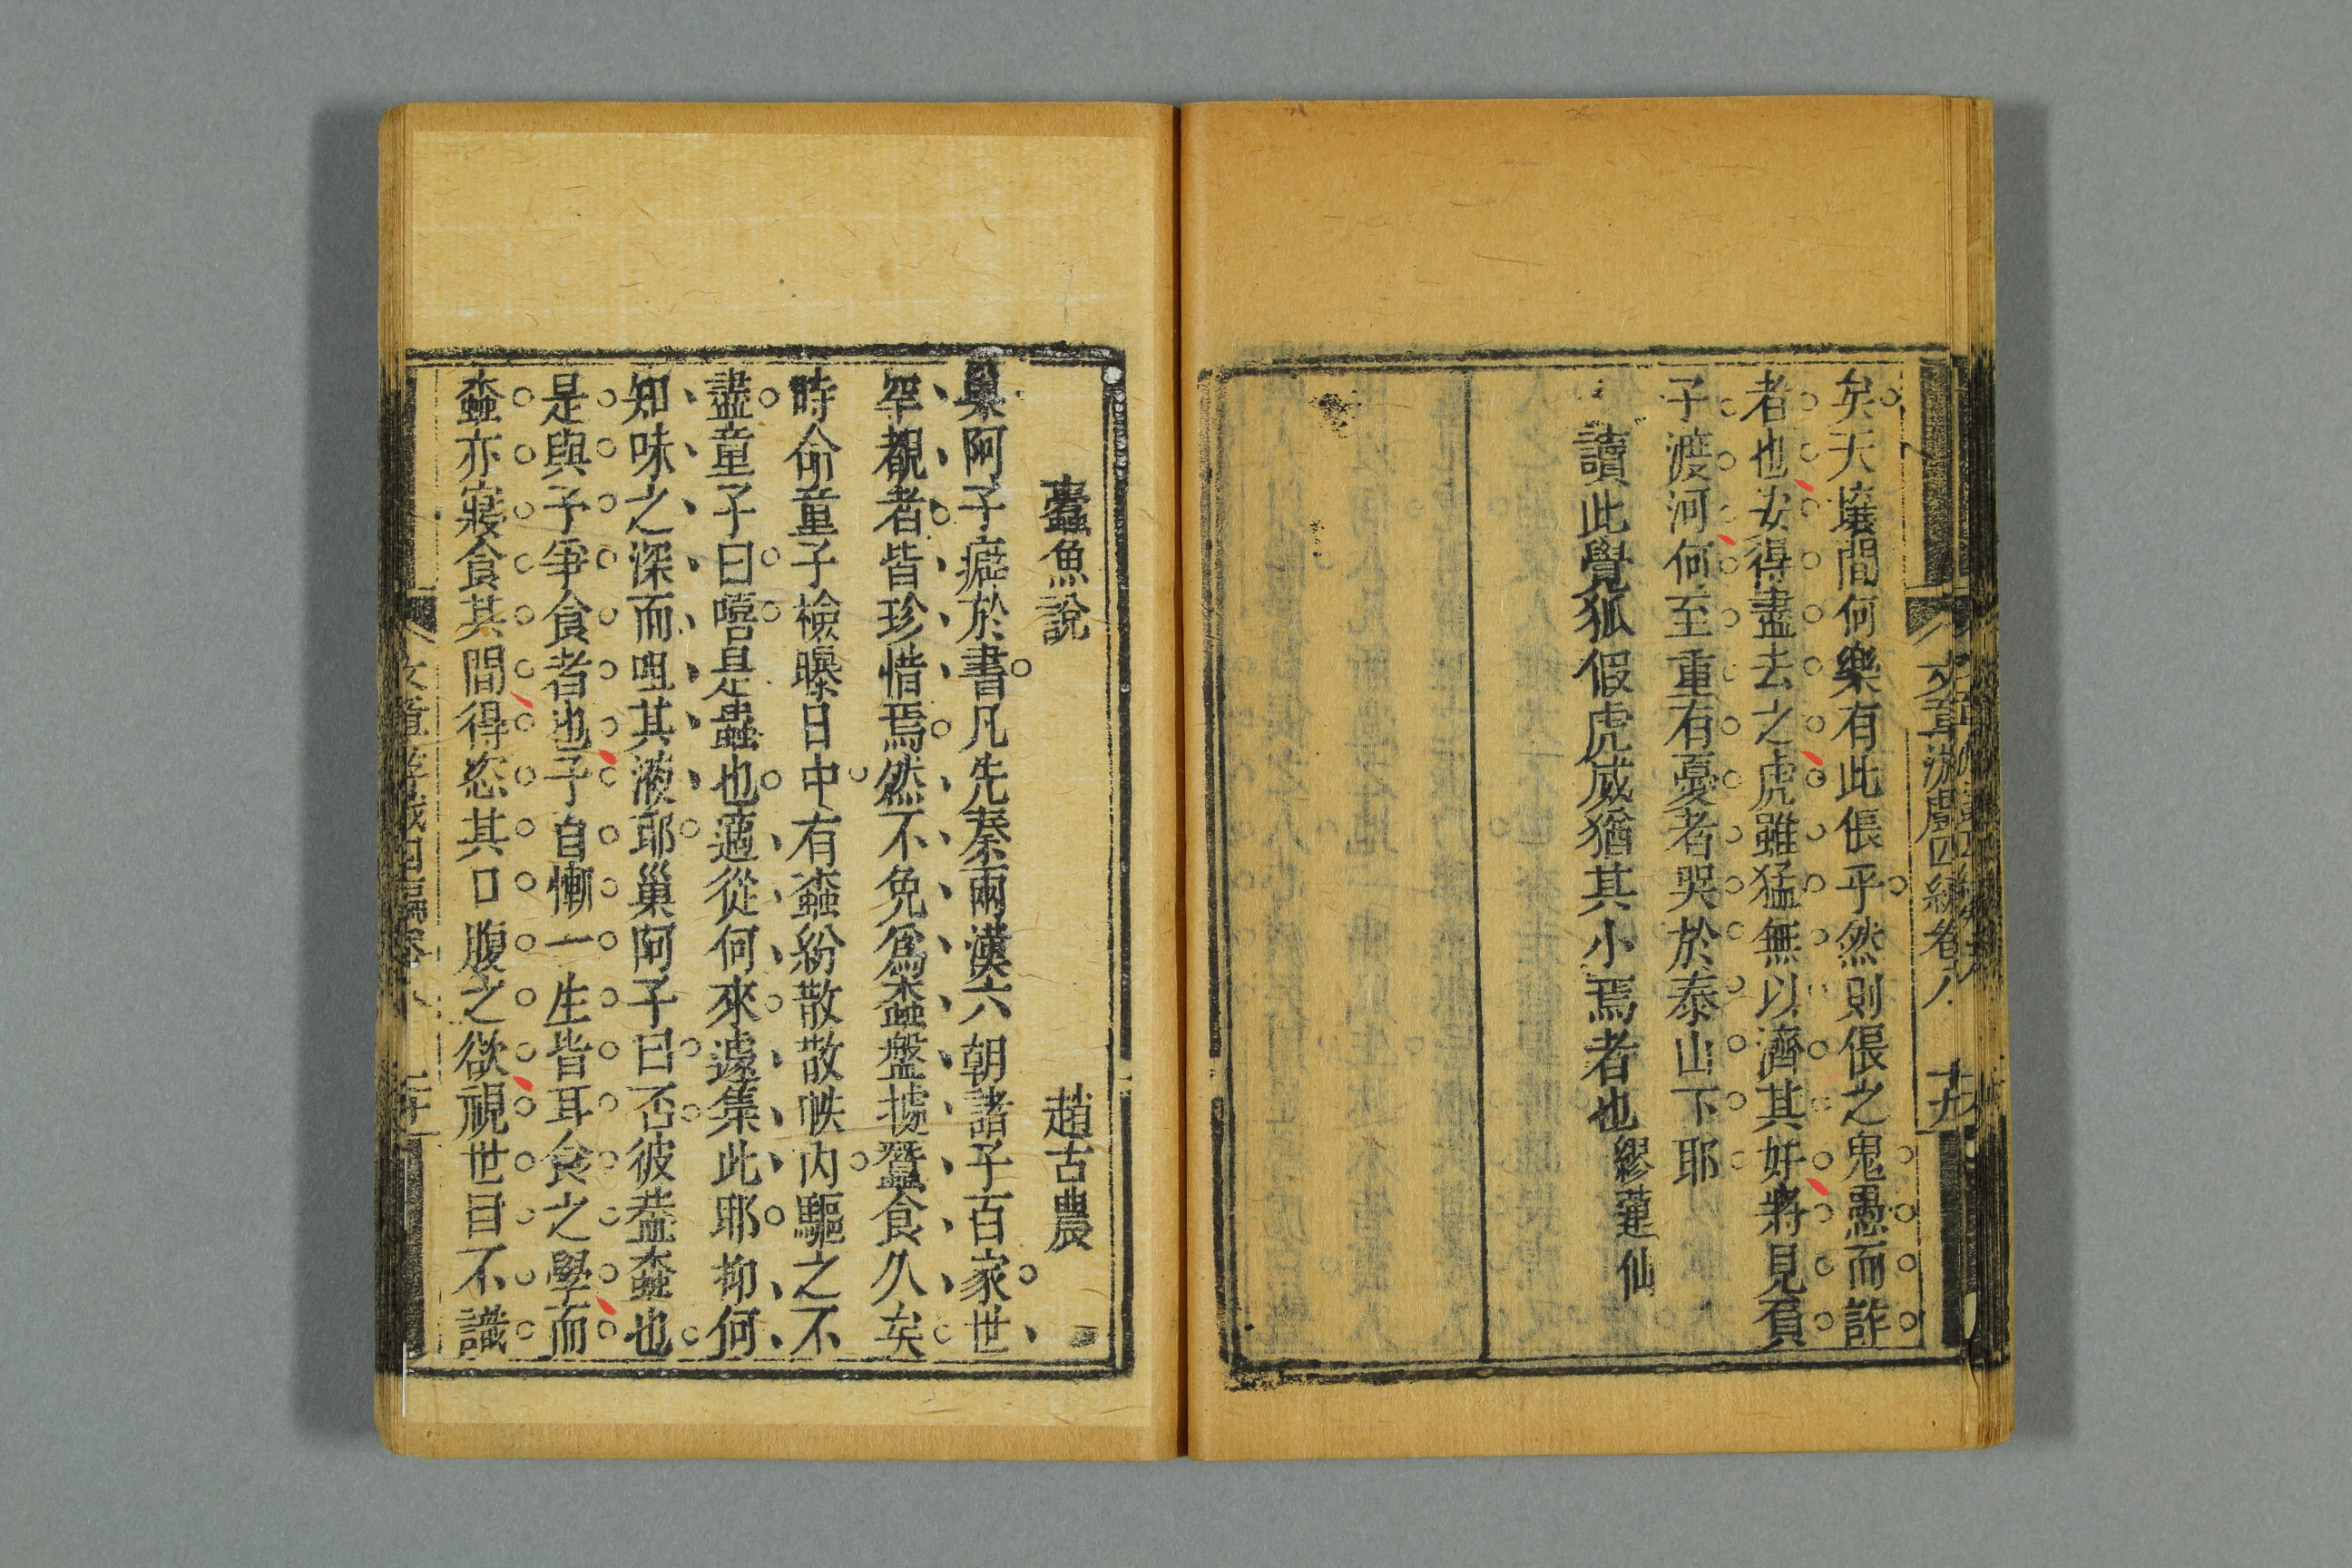 文章游戲四編卷八 十九
矣天壤間何樂有此倀乎然則倀之鬼愚而詐
者也安得盡去之虎雖猛無以濟其奸將見負
子渡河何至重有憂者哭於泰山下耶
讀此覺狐假虎威猶其小焉者也 繆蓮仙
蠹魚說 趙古農
巢阿子癖於書凡先秦兩漢六朝諸子百家世
罕覩者皆珍惜焉然不免爲蠧盤據蠶食久矣
時偷童子檢曝日中有蠧紛散散帙内驅之不
盡童子曰嘻是蟲也適從何來遽集此耶抑何
知味之深而咀其液耶巢阿子曰否彼葢蠧也
是與予爭食者也予自慚一生皆耳食之學而
蠧亦寢食其間得恣其口腹之欲視世目不識